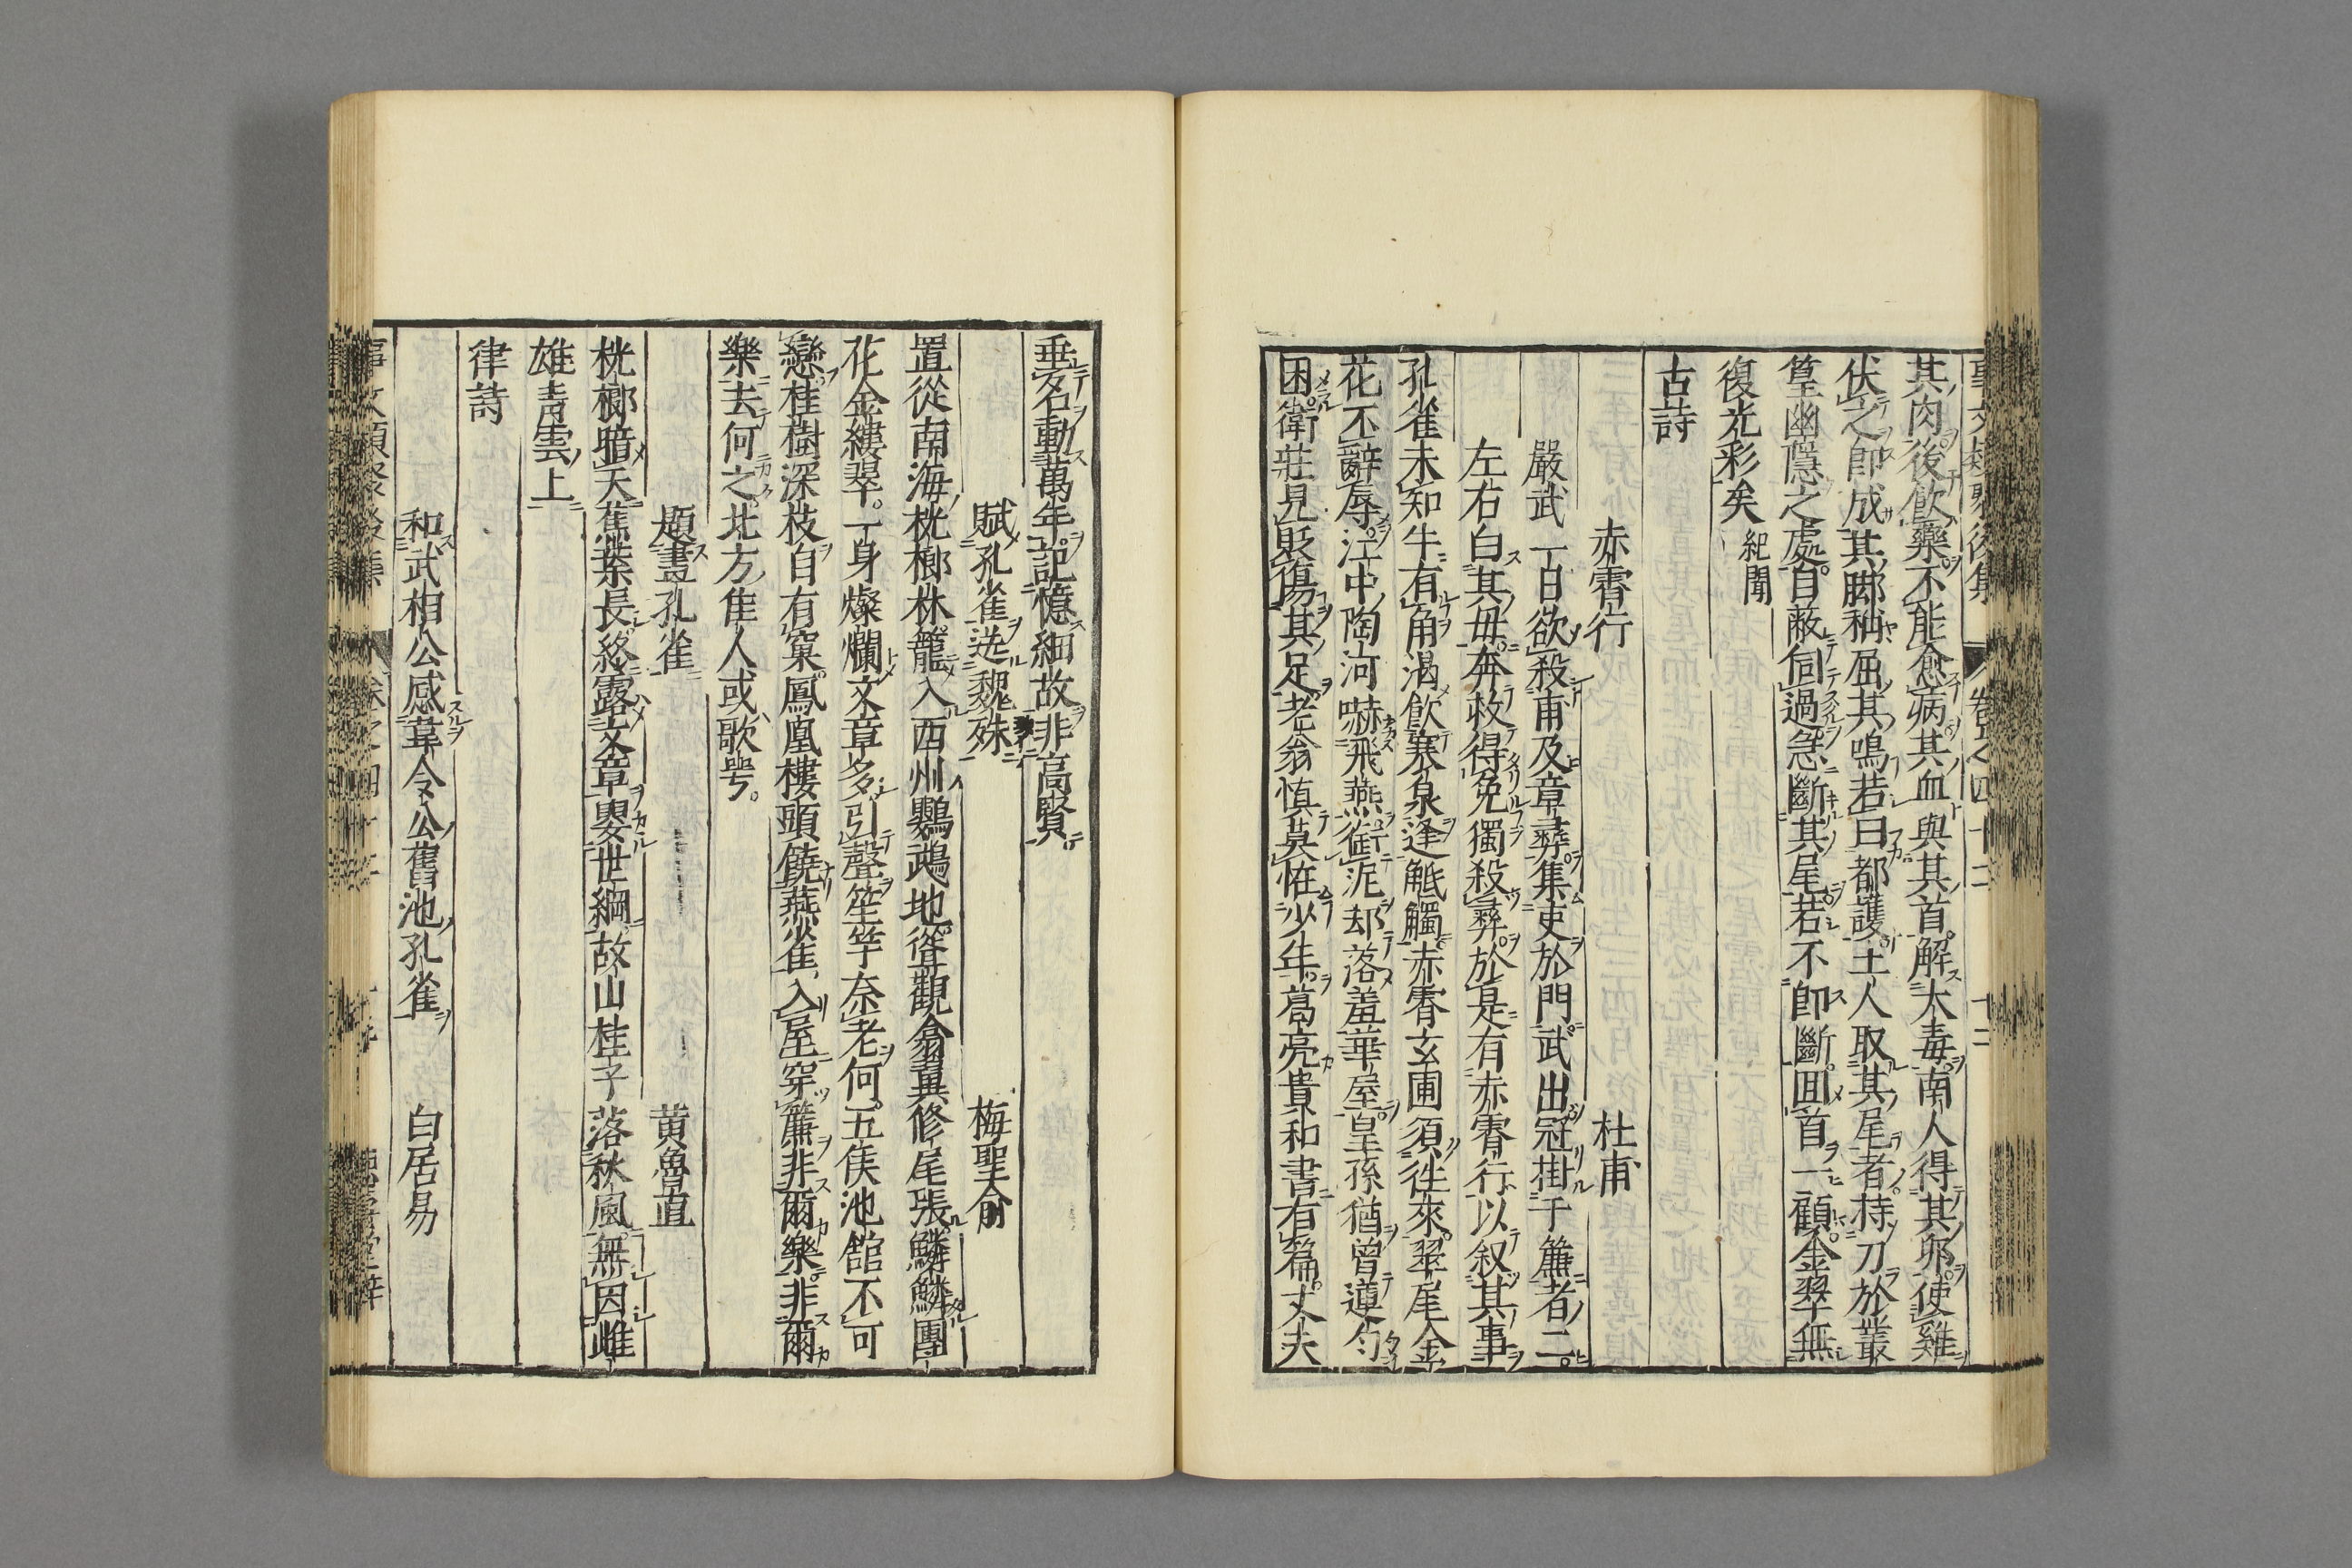 事文類聚後集 卷之四十二 十三
其肉後飮藥不能愈病其血與其首解大毒南人得其卵使雞
伏之即成其脚稍屈其鳴若曰都護土人取其尾者持刀於叢
篁幽隱之處自蔽伺過急斷其尾若不即斷囬首一顧金翠無
復光彩矣 紀聞
古詩
赤霄行 杜甫
嚴武一日欲殺甫及章彝集吏於門武出冠掛于簾者二
左右白其母奔救得免獨殺彝於是有赤霄行以叙其事
孔雀未知牛有角渴飮寒泉逢觝觸赤霄玄圃須徃來翠尾金
花不辭辱江中陶河嚇飛燕銜泥却落羞華屋皇孫猶曾蓮勺
困衛莊見貶傷其足老翁慎莫恠少年葛亮貴和書有篇丈夫
垂名動萬年記憶細故非高賢
賦孔雀送魏殊 梅聖俞
置從南海桄榔林籠入西州鸚鵡地聳觀翕翼修尾張鱗鱗團
花金縷翠一身燦爛文章多引聲笙竽奈老何五侯池舘不可
戀桂樹深枝自有窠鳳凰樓頭饒燕雀入屋穿簾非爾樂非爾
樂去何之北方佳人或歌咢
題畫孔雀 黄魯直
桄榔暗天蕉葉長終露文章嬰世綱故山桂子落秋風無因雌
雄青雲上
律詩
和武相公感韋令公舊池孔雀 白居易